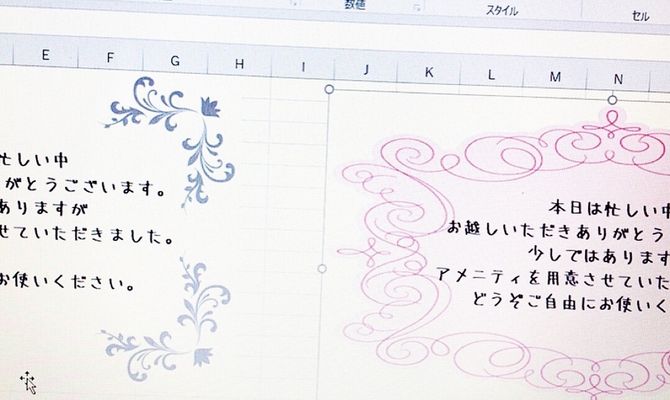 数値
スタイル
セル
E F G H I J K L M N
忙しい中
がとうございます。
ありますが
せていただきました。
お使いください。
本日は忙しい中
お越しいただきありがとう
少しではあります
アメニティを用意させていた
どうぞご自由にお使いく